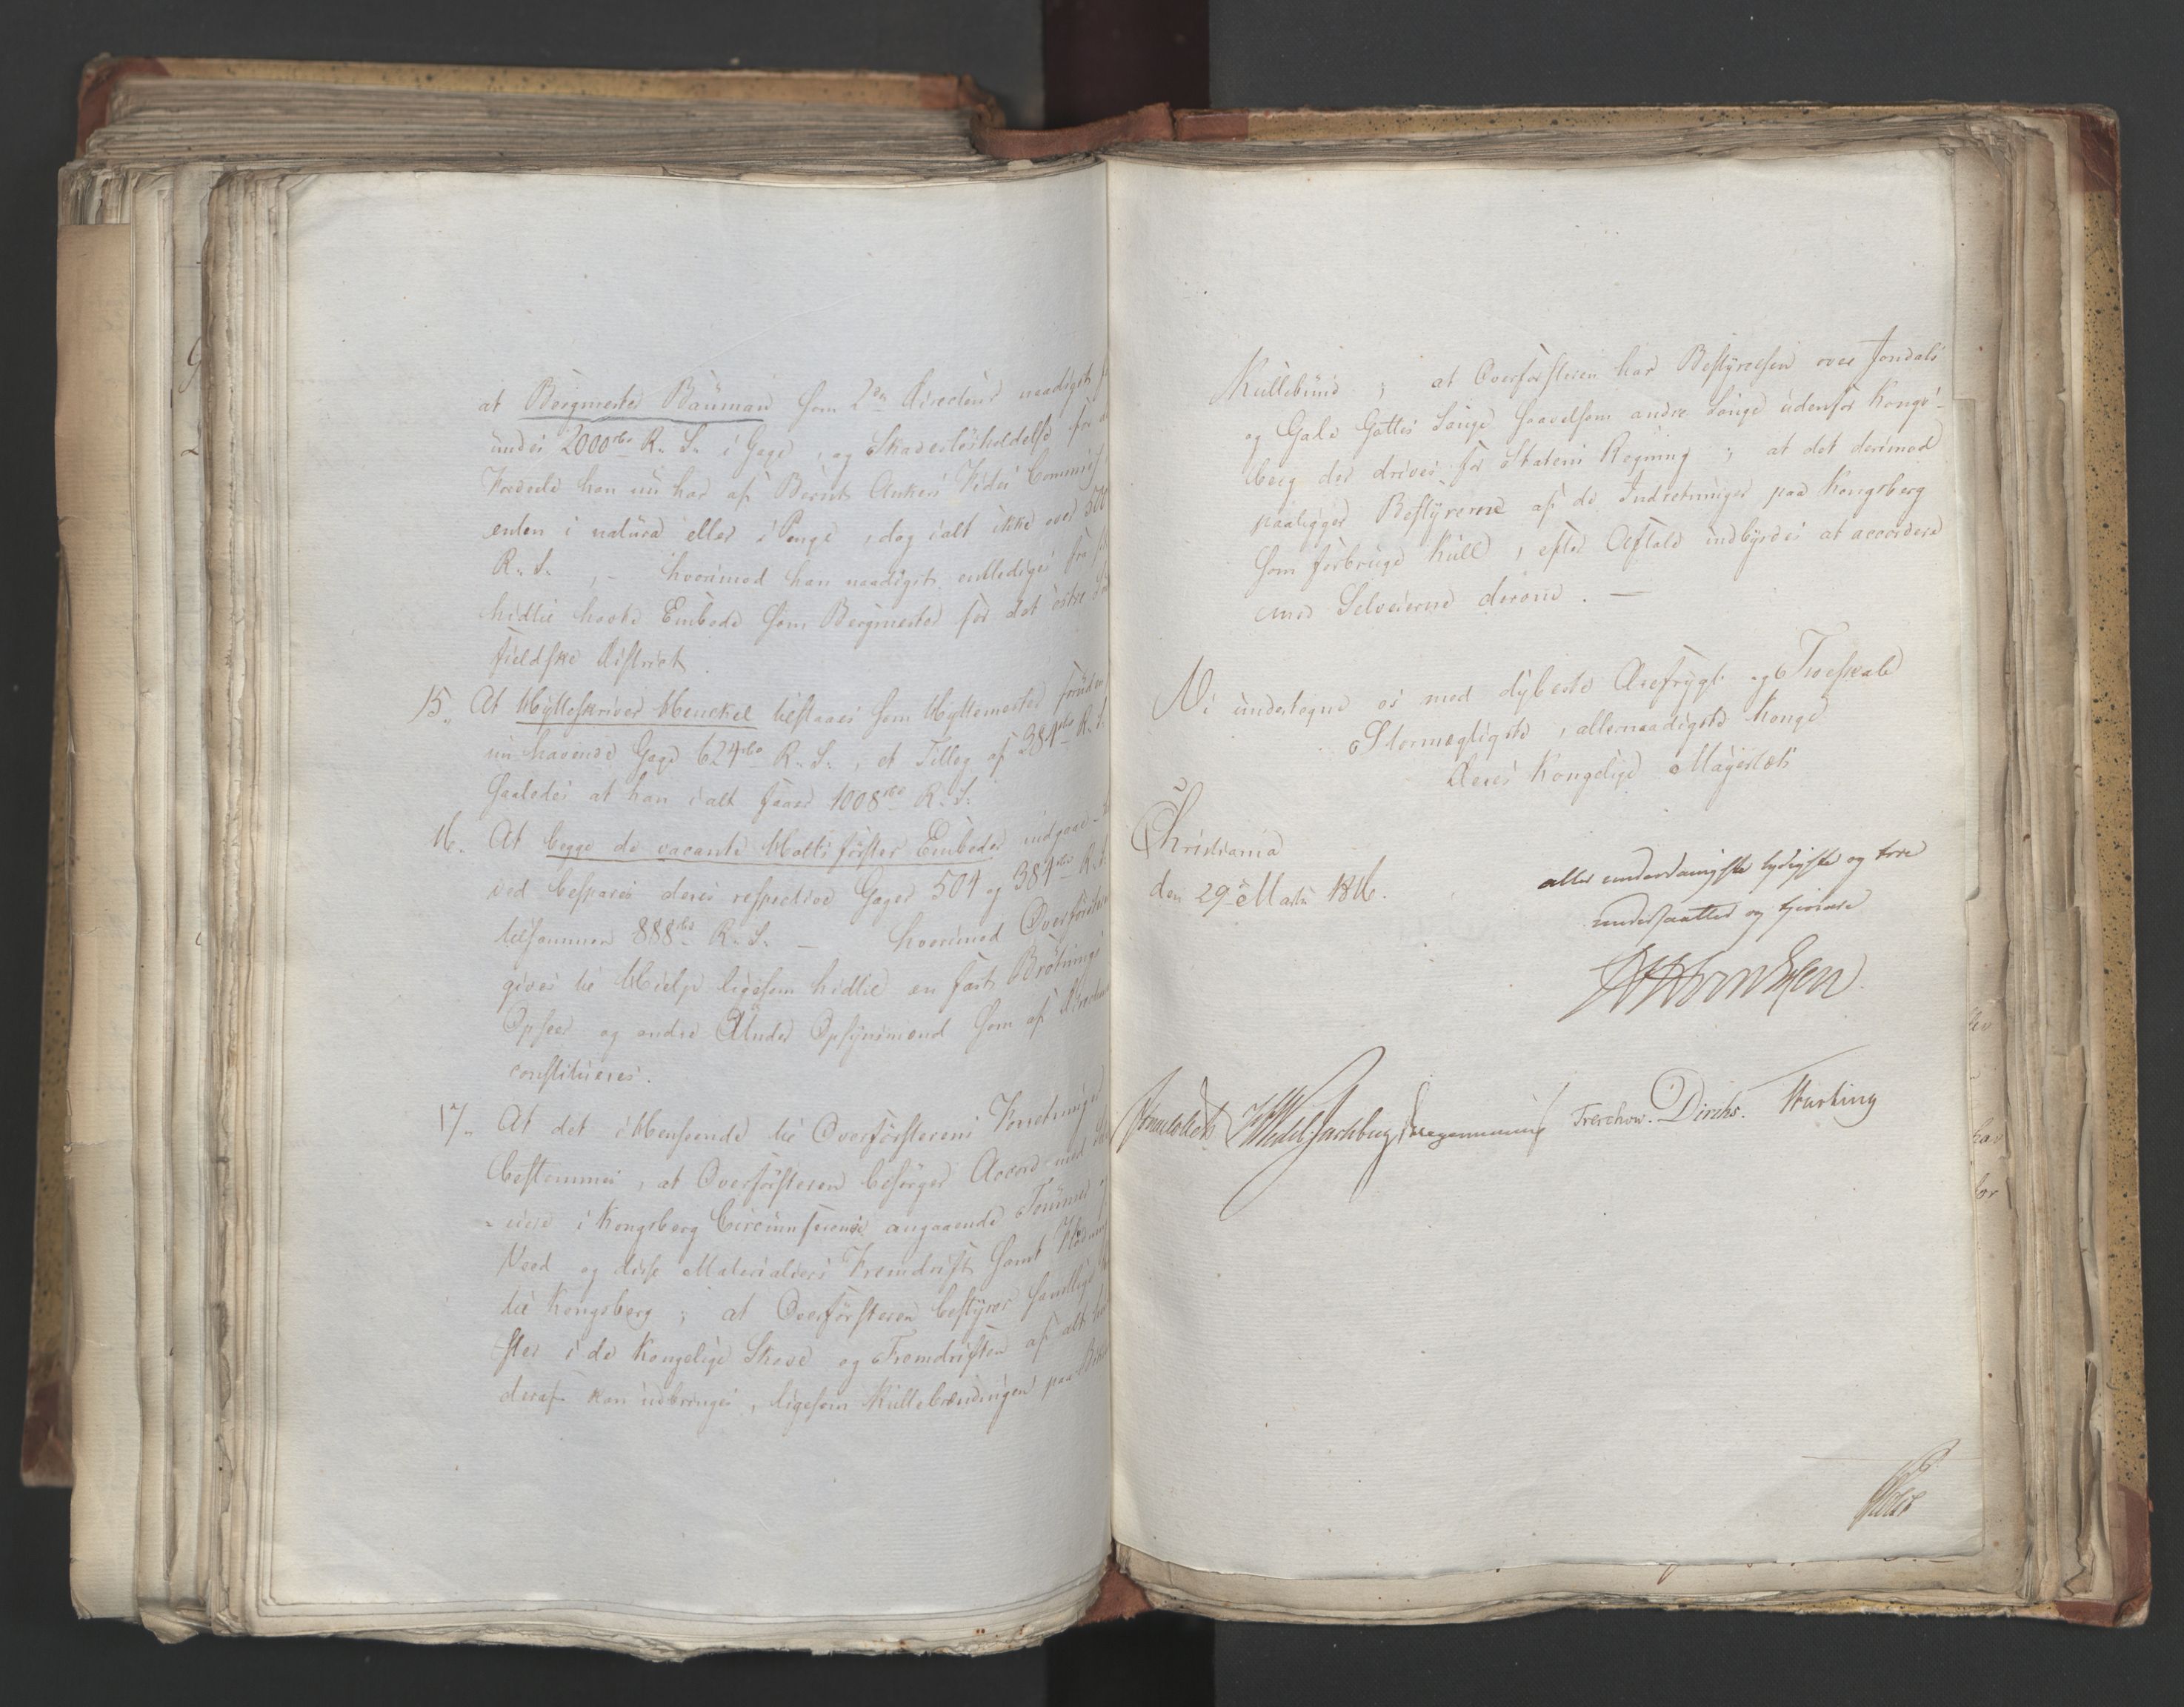 at Bergmester Bauman som 2den Directeur naadigst
undes 2000rbd R. S. i Gage, og Skadesløsholdelse for
Fordeele han nu har af Bernt Ankers Fidei Commis
enten i natura eller i Penge, dog ialt ikke over 500
R. S., – hvorimod han naadigst entlediges fra
hidtil havte Embede som Bergmester for det östre
fieldske District
15. At Hytteskriver Henckel tilstaaes som Hyttemester foruden
nu havende Gage 624rbd R. S., et Tillæg af 384rbd R. S.
saaledes at han ialt faaer 1008rbd R. S.
16. At begge de vacante Holtsförster Embeder indgaae –
ved bespares deres respective Gager 504 og 384rbd R. S.
tilsammen 888rbd R. S. – hvorimod Overförsteren
gives til Hielp ligesom hidtil en fast Brötnings
Opseer og andre Under Opsynsmænd som af Directionen
constitueres.
17. At det i Henseende til Overförsterens Forretninger
bestemmes, at Overförsteren besörger Accord med
eiere i Kongsberg Circumference angaaende Tömmer
Veed og disse Materialiers Fremdrift samt Flödning
til Kongsberg; at Overförsteren bestyrer samtlige
ster i de Kongelige Skove og Fremdriften af alt
deraf kan udbringes, ligesom Kullebrændingen paa
Kullebund; at Overförsteren har Bestyrelsen over Jondals
og Gale Gottes Sauge saavelsom andre Sauge udenfor Kongs-
berg der drives for Statens Regning; at det derimod
paaligger Bestyrerne af de Indretninger paa Kongsberg
som forbruge Kull, efter Aftale indbyrdes at accordere
med Selveierne derom. –
Vi undertegne os med dybeste Ærefrygt og Troeskab
Stormægtigste, allernaadigste Konge
Deres Kongelige Majestæts
Christiania
den 29 Marts 1816.
aller underdanigste lydigste og troe
undersaatter og tjenere
Sommerhielm HWedel Jarlsberg Hegermann Treschow. Diriks. Hurting